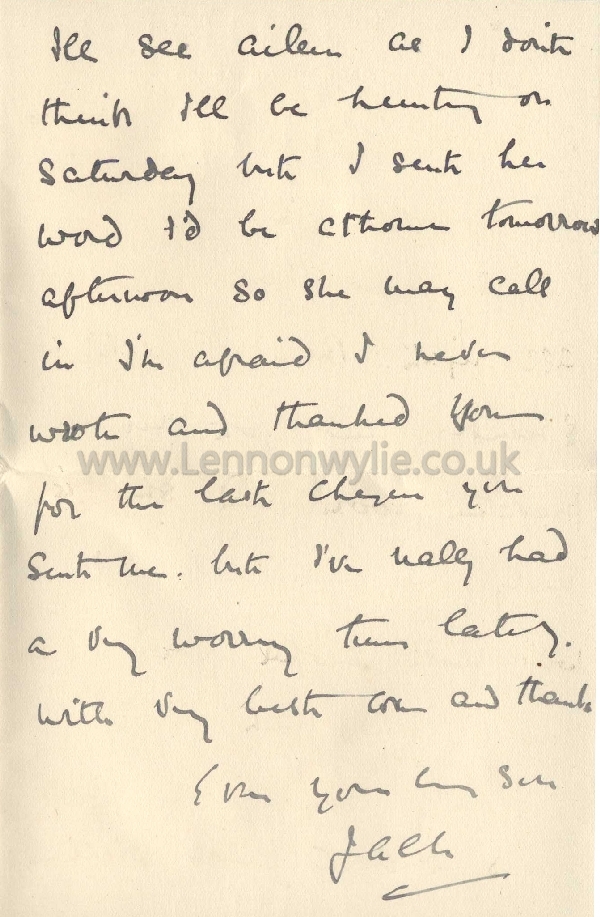 I'll see Aileen as I don't
think I'll be hunting on
Saturday but I sent her
word I'd be at home tomorrow
afternoon so she may call
in I'm afraid I never
wrote and thanked you
www.Lennonwylie.co.uk
for the last cheque you
sent me. but I've really had
a very worrying time lately.
with very best love and thanks
Ever your loving son
Jack